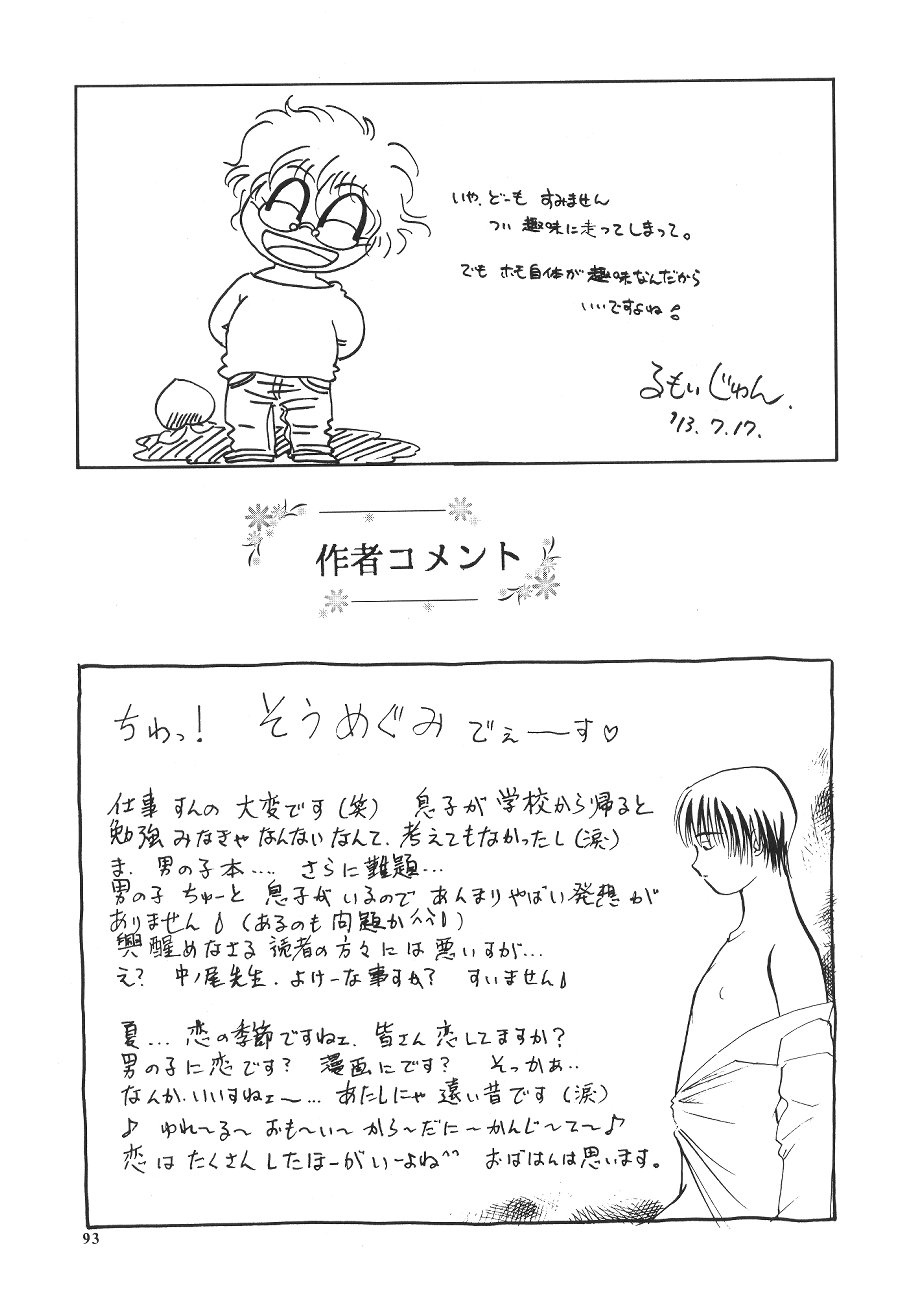 いや、どーも すみません
つい 趣味に走ってしまって。
でも ホモ自体が趣味なんだから
いいですよね
るもいじゅん.
'13.7.17.
作者コメント
ちわっ! そうめぐみ でぇーーす♡
仕事 すんの 大変です(笑) 息子が 学校から帰ると
勉強 みなきゃ なんないなんて、考えてもなかったし(涙)
ま、男の子本.... さらに難題...
男の子 ちゅーと 息子が いるので あんまりやばい発想が
ありません!(あるのも 問題か^^!)
興醒めなさる 読者の方々には 悪いすが...
え? 中ノ尾先生、よけーな事すか? すいません!
夏... 恋の季節ですねェ、皆さん恋してますか?
男の子に恋です? 漫画にです? そっかぁ..
なんか、いいすねェ〜... あたしにゃ 遠い昔です(涙)
♪ ゆれ〜る〜 おも〜い〜 から〜だに〜かんじ〜て〜♪
恋は たくさん したほーが いーよね^^ おばはんは思います。
93